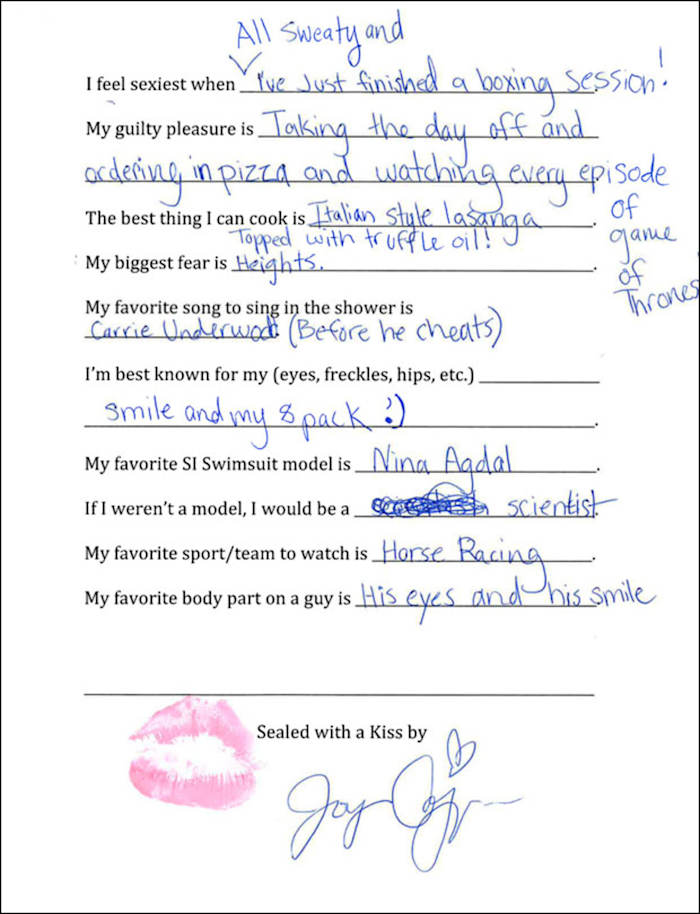 All Sweaty and
I feel sexiest when I've Just finished a boxing session!
My guilty pleasure is Taking the day off and
ordering in pizza and watching every episode
of
game
of
Thrones
The best thing I can cook is Italian style lasanga.
Topped with truffle oil!
My biggest fear is Heights.
My favorite song to sing in the shower is
Carrie Underwood (Before he cheats)
I'm best known for my (eyes, freckles, hips, etc.)
smile and my 8 pack :).
My favorite SI Swimsuit model is Nina Agdal.
If I weren't a model, I would be a scientist.
My favorite sport/team to watch is Horse Racing.
My favorite body part on a guy is His eyes and his smile
Sealed with a Kiss by